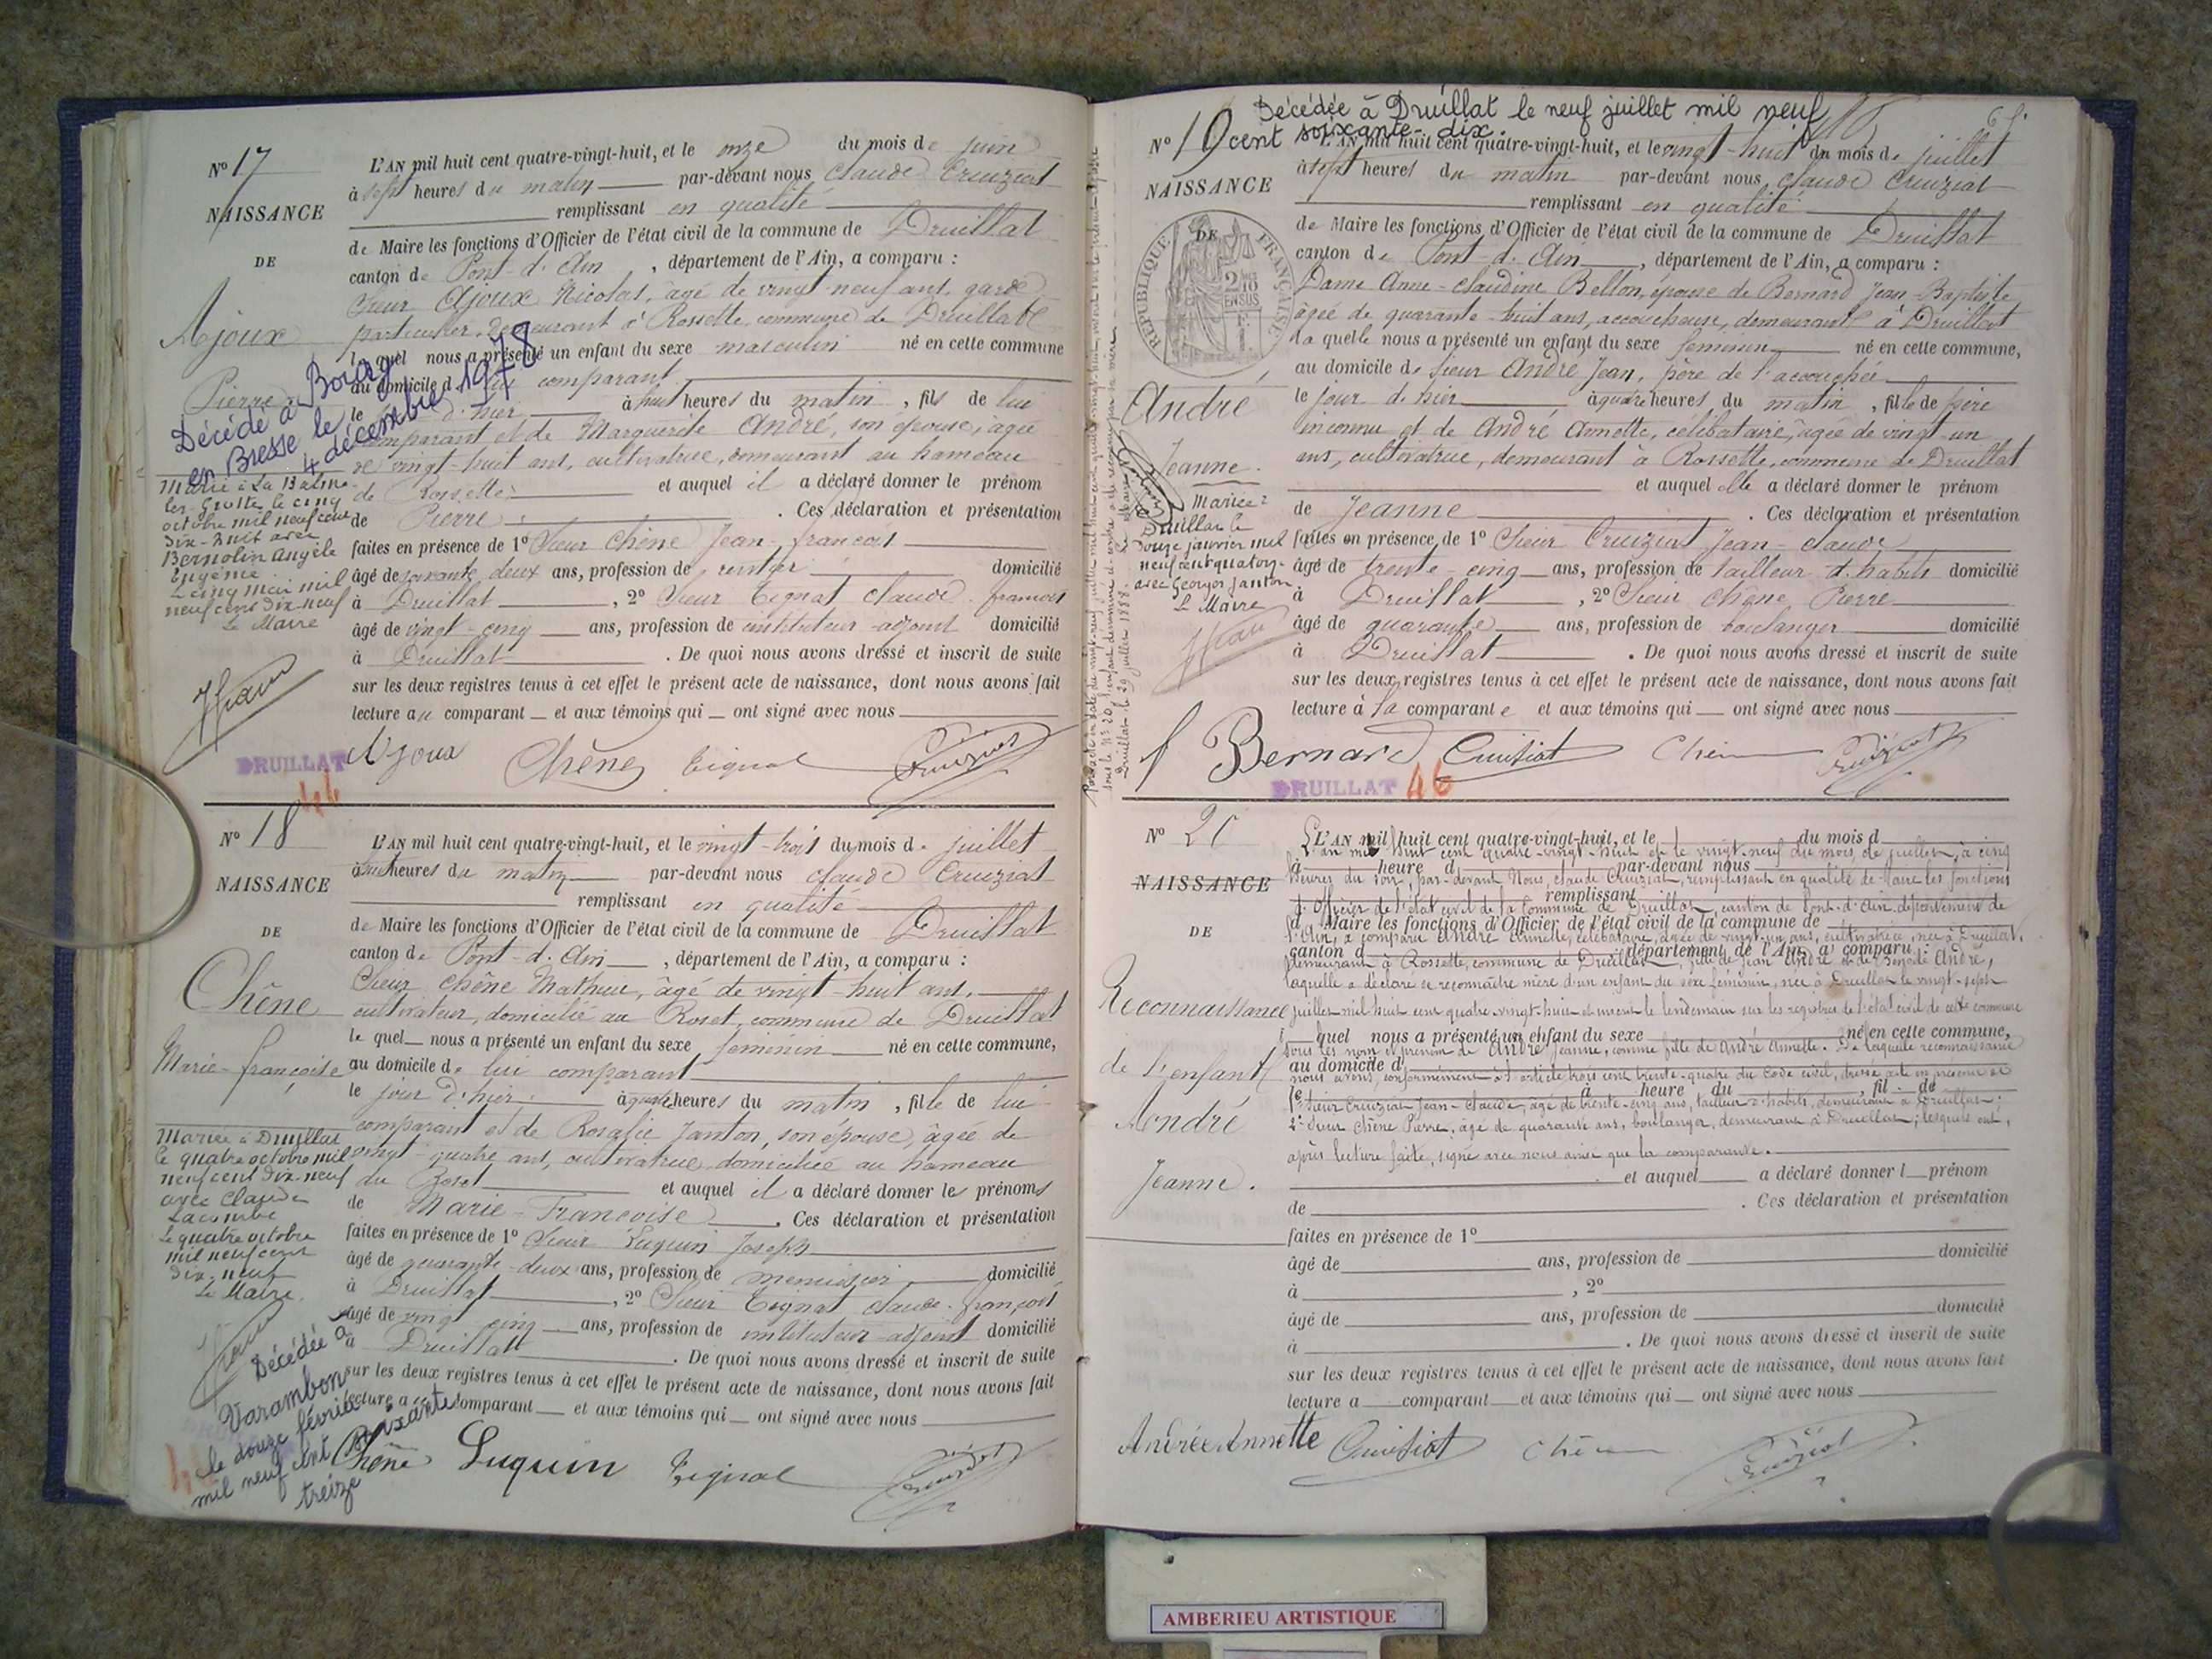 No 17
NAISSANCE
DE
Ajoux
Pierre
Décédé à Bourg
en Bresse le
4 décembre 1978
Marié à La Balme-
les-Grottes le cinq
octobre mil neuf cent
dix-huit avec
Bornolin Angèle
Eugénie.
Le cinq Mai mil
neuf cent dix neuf
Le Maire
L'AN mil huit cent quatre-vingt-huit, et le onze du mois de juin
à sept heures du matin par-devant nous Claude Cruiziat
remplissant en qualité
de Maire les fonctions d'Officier de l'état civil de la commune de Druillat
canton de Pont-d'Ain, département de l'Ain, a comparu :
Sieur Ajoux Nicolas, âgé de vingt-neuf ans, garde
particulier, demeurant à Rossette, commune de Druillat
lequel nous a présenté un enfant du sexe masculin né en cette commune
au domicile de lui comparant
le jour d'hier à huit heures du matin, fils de lui
comparant et de Marguerite André, son épouse, âgée
de vingt-huit ans, cultivatrice, demeurant au hameau
de Rossette et auquel il a déclaré donner le prénom
de Pierre. Ces déclaration et présentation
faites en présence de 1º Sieur Chêne Jean-françois
âgé de soixante deux ans, profession de rentier domicilié
à Druillat, 2º Sieur Tignat Claude-françois
âgé de vingt-cinq ans, profession de instituteur-adjoint domicilié
à Druillat. De quoi nous avons dressé et inscrit de suite
sur les deux registres tenus à cet effet le présent acte de naissance, dont nous avons fait
lecture au comparant et aux témoins qui ont signé avec nous
DRUILLAT Ajoux Chêne Tignat Cruiziat
No 18
NAISSANCE
DE
Chêne
Marie-françoise
Mariée à Druillat
le quatre octobre mil
neuf cent dix-neuf
avec Claude
Lacombe
Le quatre octobre
mil neuf cent
dix-neuf
Le Maire.
Décédée à
Varambon
le douze février
mil neuf cent soixante
treize
L'AN mil huit cent quatre-vingt-huit, et le vingt-trois du mois de juillet
à heures du matin par-devant nous Claude Cruiziat
remplissant en qualité
de Maire les fonctions d'Officier de l'état civil de la commune de Druillat
canton de Pont-d'Ain, département de l'Ain, a comparu :
Sieur Chêne Mathieu, âgé de vingt-huit ans,
cultivateur, domicilié au Roset, commune de Druillat
lequel nous a présenté un enfant du sexe féminin né en cette commune,
au domicile de lui comparant
le jour d'hier à quatre heures du matin, fille de lui
comparant et de Rosalie Janton, son épouse, âgée de
vingt-quatre ans, cultivatrice domiciliée au hameau
du Roset et auquel il a déclaré donner les prénoms
de Marie-Françoise. Ces déclaration et présentation
faites en présence de 1º Sieur Luquin Joseph
âgé de quarante-deux ans, profession de menuisier domicilié
à Druillat, 2º Sieur Tignat Claude-françois
âgé de vingt cinq ans, profession de instituteur-adjoint domicilié
à Druillat. De quoi nous avons dressé et inscrit de suite
sur les deux registres tenus à cet effet le présent acte de naissance, dont nous avons fait
lecture au comparant et aux témoins qui ont signé avec nous
Chêne Luquin Tignat Cruiziat
Décédée à Druillat le neuf juillet mil neuf
cent soixante-dix.
No 19
NAISSANCE
DE
RÉPUBLIQUE FRANÇAISE
2/10 EN SUS
André
Jeanne.
Mariée à
Druillat le
douze janvier mil
neuf cent quatorze
avec Georges Janton
Le Maire
Druillat le 29 juillet 1888. Le Maire
L'AN mil huit cent quatre-vingt-huit, et le vingt-huit du mois de juillet
à sept heures du matin par-devant nous Claude Cruiziat
remplissant en qualité
de Maire les fonctions d'Officier de l'état civil de la commune de Druillat
canton de Pont-d'Ain, département de l'Ain, a comparu :
Dame Anne-Claudine Bellon, épouse de Bernard Jean-Baptiste
âgée de quarante-huit ans, accoucheuse, demeurant à Druillat
laquelle nous a présenté un enfant du sexe féminin né en cette commune,
au domicile de sieur André Jean, père de l'accouchée
le jour d'hier à quatre heures du matin, fille de père
inconnu et de André Annette, célibataire, âgée de vingt-un
ans, cultivatrice, demeurant à Rossette, commune de Druillat
et auquel elle a déclaré donner le prénom
de Jeanne. Ces déclaration et présentation
faites en présence de 1º Sieur Cruiziat Jean-Claude
âgé de trente-cinq ans, profession de tailleur d'habits domicilié
à Druillat, 2º Sieur Chêne Pierre
âgé de quarante ans, profession de boulanger domicilié
à Druillat. De quoi nous avons dressé et inscrit de suite
sur les deux registres tenus à cet effet le présent acte de naissance, dont nous avons fait
lecture à la comparante et aux témoins qui ont signé avec nous
f Bernard Cruisiat Chêne Cruiziat
DRUILLAT 46
No 20
NAISSANCE
DE
Reconnaissance
de l'enfant
André
Jeanne.
L'AN mil huit cent quatre-vingt-huit, et le du mois d
L'an mil huit cent quatre-vingt-huit et le vingt-neuf du mois de juillet, à cinq
à heure d par-devant nous
heures du soir, par-devant Nous, Claude Cruiziat, remplissant en qualité de Maire les fonctions
remplissant
d'Officier de l'état civil de la Commune de Druillat, canton de Pont-d'Ain, département de
d Maire les fonctions d'Officier de l'état civil de la commune de
l'Ain, a comparu André Annette, célibataire, âgée de vingt-un ans, cultivatrice, née à Druillat,
canton d département de l'Ain, a comparu :
demeurant à Rossette, commune de Druillat, fille de Jean André et de Benoite André,
laquelle a déclaré se reconnaître mère d'un enfant du sexe féminin, née à Druillat le vingt-sept
juillet mil huit cent quatre-vingt-huit et inscrit le lendemain sur les registres de l'état civil de cette commune
l quel nous a présenté un enfant du sexe né en cette commune,
sous les nom et prénom de André Jeanne, comme fille de André Annette. De laquelle reconnaissance
au domicile d
nous avons, conformément à l'article trois cent trente-quatre du Code civil, dressé acte en présence de
le à heure du, fil de
1º Sieur Cruiziat Jean-Claude, âgé de trente-cinq ans, tailleur d'habits, demeurant à Druillat;
2º Sieur Chêne Pierre, âgé de quarante ans, boulanger, demeurant à Druillat; lesquels ont,
après lecture faite, signé avec nous ainsi que la comparante.
et auquel a déclaré donner l prénom
de. Ces déclaration et présentation
faites en présence de 1º
âgé de ans, profession de domicilié
à, 2º
âgé de ans, profession de domicilié
à. De quoi nous avons dressé et inscrit de suite
sur les deux registres tenus à cet effet le présent acte de naissance, dont nous avons fait
lecture a comparant et aux témoins qui ont signé avec nous
Andrée Annette Cruisiat Chêne Cruiziat
AMBERIEU ARTISTIQUE